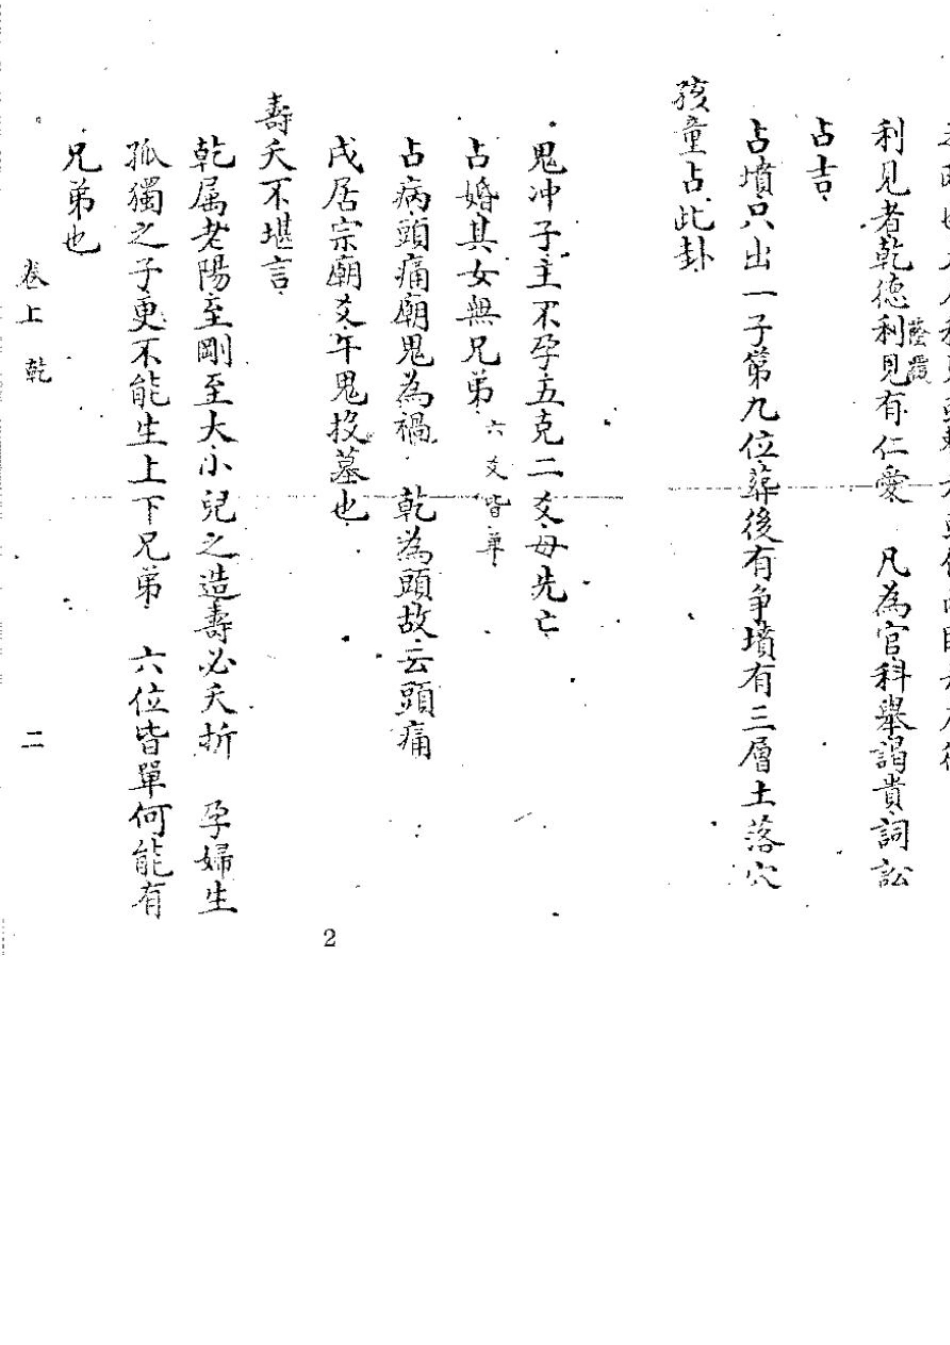 利見者乾德利見有仁愛　凡為官科舉謁貴詞訟
蔭覆
占吉
占墳只出一子第九位葬後有爭墳有三層土落穴
孩童占此卦
鬼冲子主不孕五克二爻母先亡
占婚其女無兄弟 六爻皆單
占病頭痛廟鬼為禍　乾為頭故云頭痛
戌居宗廟爻午鬼投墓也
壽夭不堪言
乾属老陽至剛至大小兒之造壽必夭折　孕婦生
孤獨之子更不能生上下兄弟　六位皆單何能有
兄弟也
卷上　乾
二
2